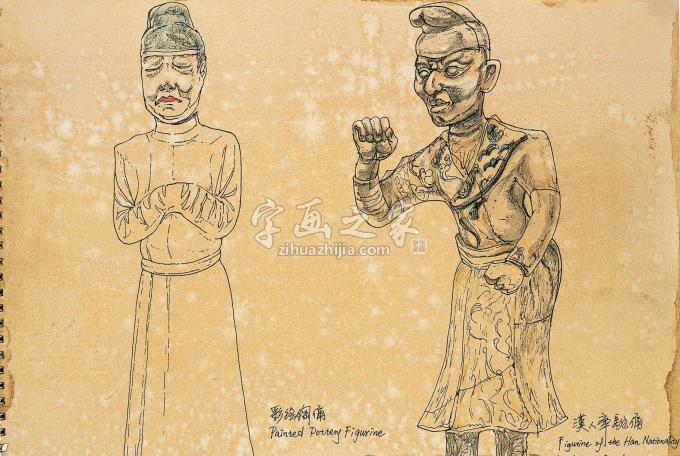 字画之家
zihuazhijia.com
彩绘陶俑
Painted Pottery Figurine
漢人牵駝俑
Figurine of the Han Nationality